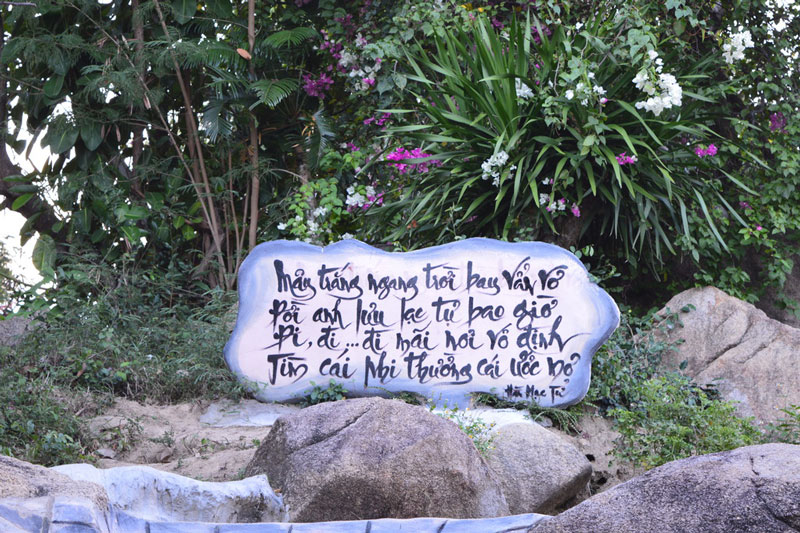 Mây trắng ngang trời bay vẩn vơ
Đời anh lưu lạc tự bao giờ
Đi, đi... đi mãi nơi vô định
Tìm cái phi thường cái ước mơ
Hàn Mạc Tử